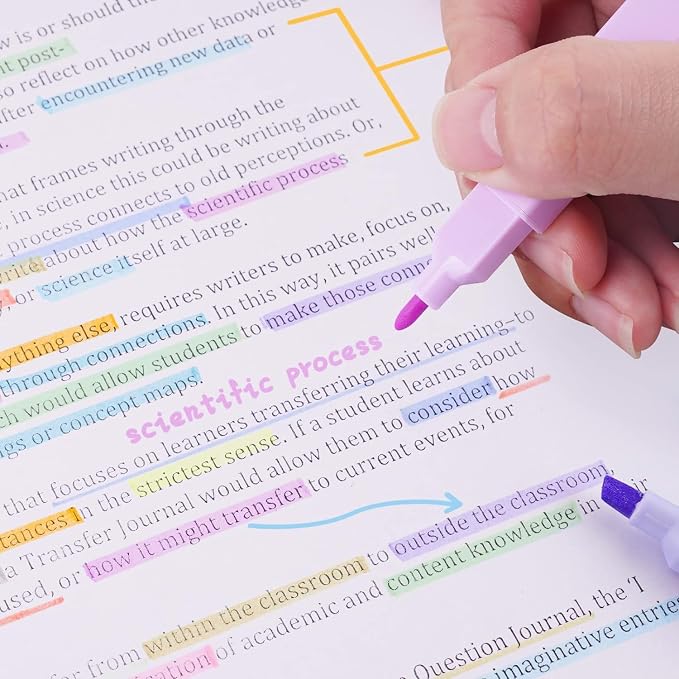 w is or should the
it post-
so reflect on how other knowledge
after encountering new data or
hat frames writing through the
e, in science this could be writing about
process connects to old perceptions. Or,
write about how the scientific process
y, or science itself at large.
requires writers to make, focus on,
anything else, In this way, it pairs well
through connections. to make those conne
ch would allow students
ngs or concept maps.
scientific process
that focuses on learners transferring their learning to
stances in the strictest sense. If a student learns about
a Transfer Journal would allow them to consider how
used, or how it might transfer to current events, for
to outside the classroom,
fer from within the classroom content knowledge in their
of academic and
Question Journal, the 'I
imaginative entries